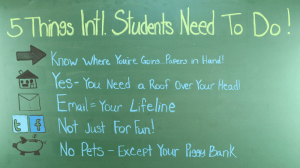 5 Things Int'l. Students Need To Do!
Know Where You're Going. Papers in Hand!
Yes- You Need a Roof Over Your Head!
Email = Your Lifeline
t f
Not Just For Fun!
No Pets - Except Your Piggy Bank